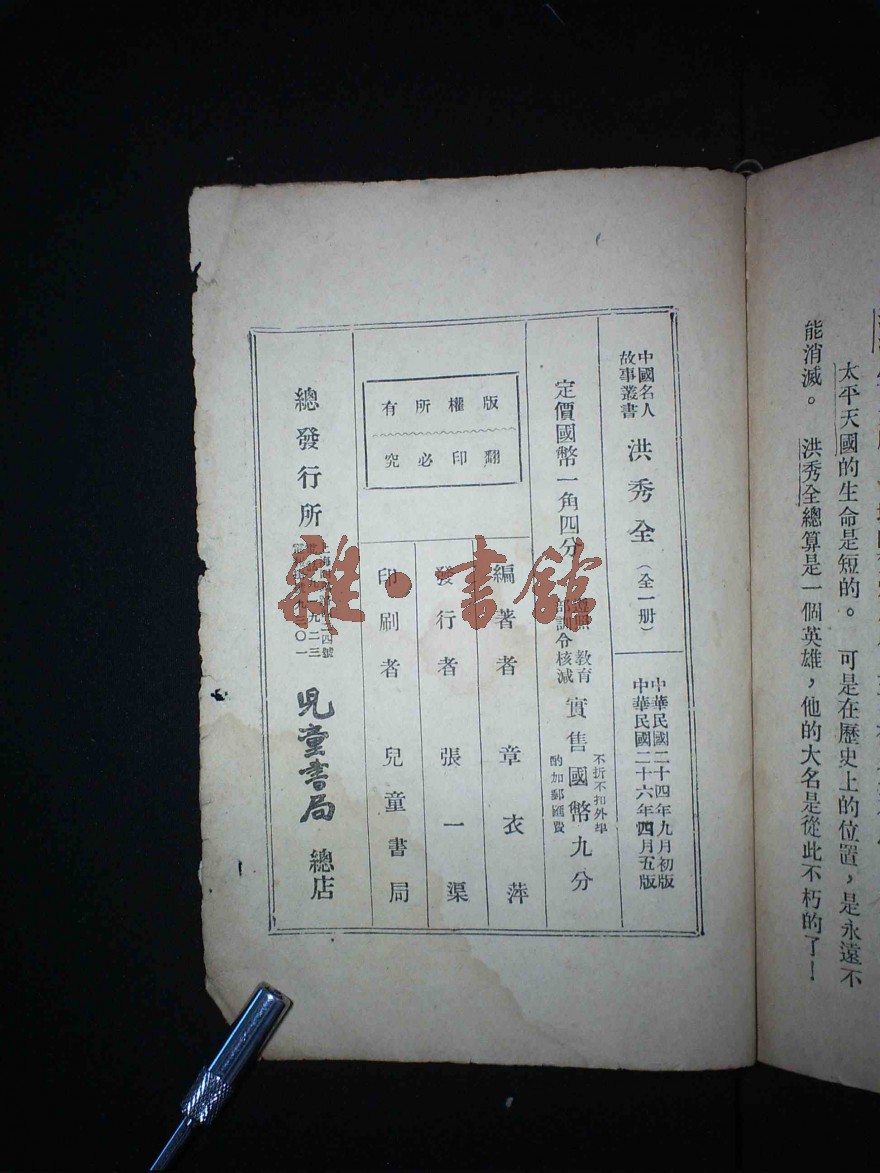 能消滅。　洪秀全總算是一個英雄，他的大名是從此不朽的了！
太平天國的生命是短的。　可是在歷史上的位置，是永遠不
中國名人
故事叢書
洪秀全（全一册）
中華民國二十四年九月初版
中華民國二十六年四月五版
定價國幣一角四分
遵照教育
部訓令核減
實售國幣九分
不折不扣外埠
酌加郵匯費
版權所有
翻印必究
編著者　章衣萍
發行者　張一渠
印刷者　兒童書局
總發行所
上海
四號
九一九二三
九三〇一
兒童書局
總店
雜·書館